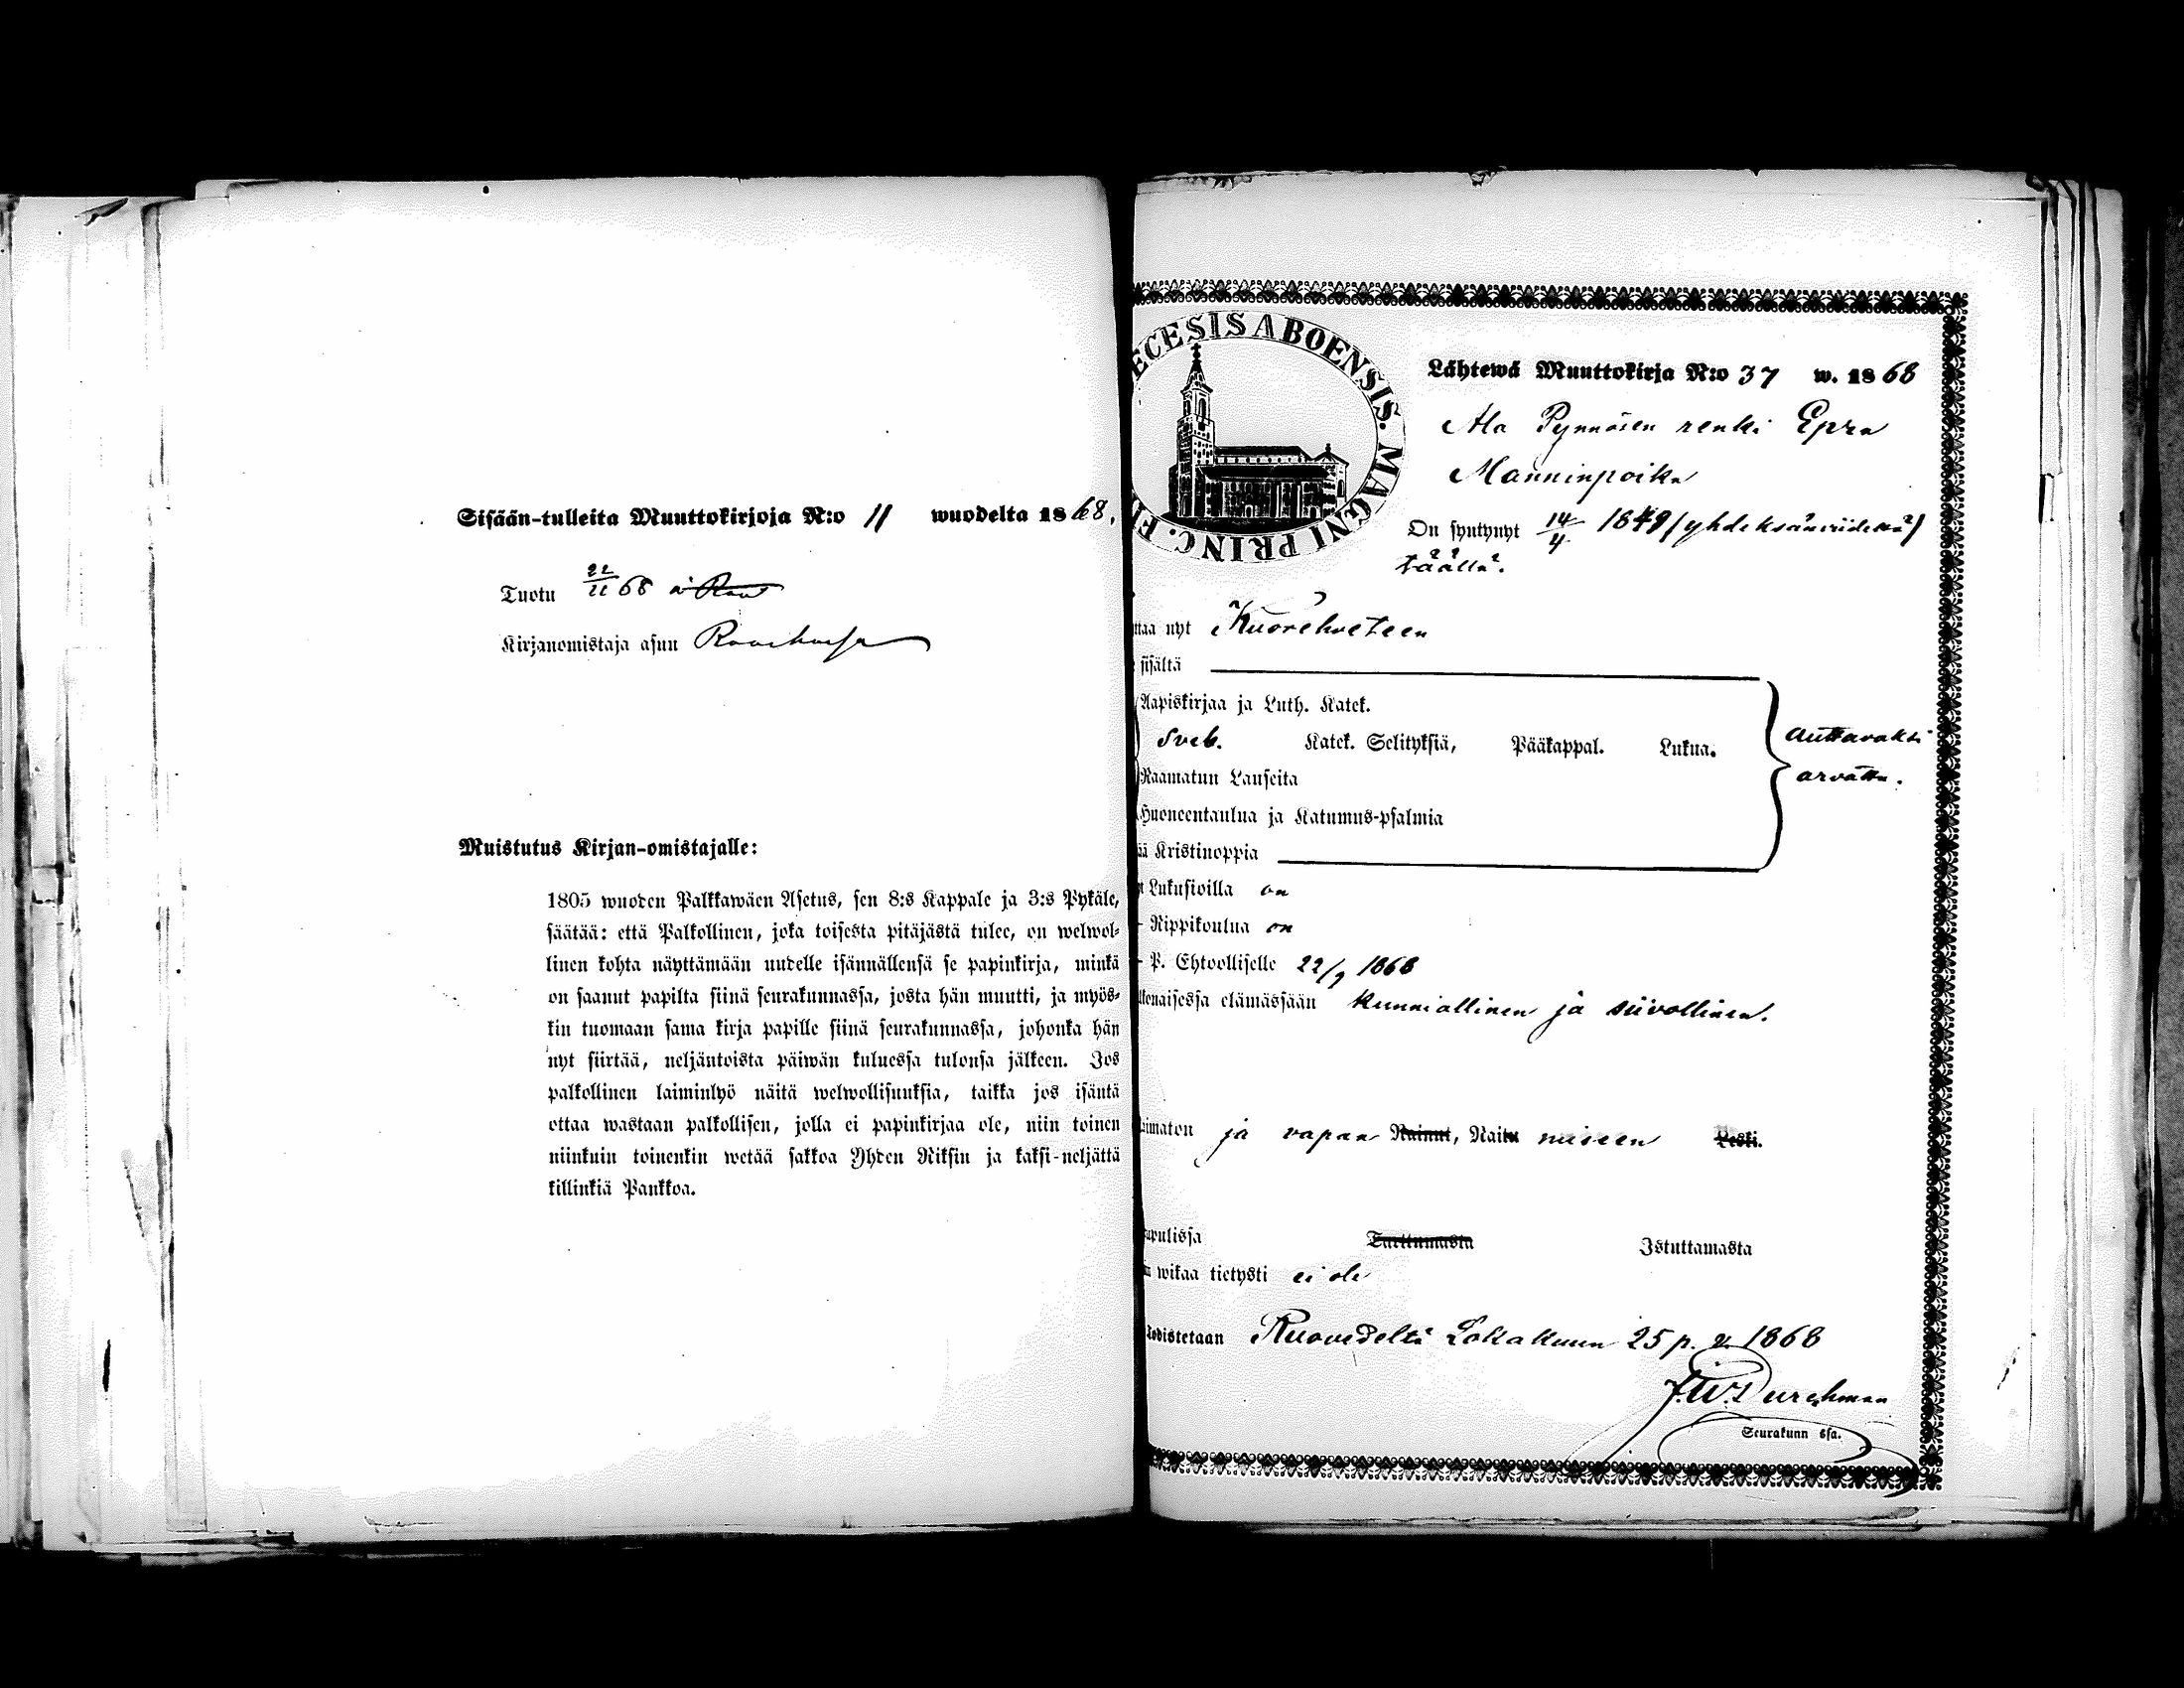 Sisään-tulleita Muuttokirjoja N:o 11 wuodelta 1868.
Tuotu 22/11 68
Kirjanomistaja asuu
Muistutus Kirjan-omistajalle:
1805 wuoden Palkkawäen Asetus, sen 8:s Kappale ja 3:s Pykäle,
säätää: että Palkollinen, joka toisesta pitäjästä tulee, on welwol-
linen kohta näyttämään uudelle isännällensä se papinkirja, minkä
on saanut papilta siinä seurakunnassa, josta hän muutti, ja myös-
kin tuomaan sama kirja papille siinä seurakunnassa, johonka hän
nyt siirtää, neljäntoista päiwän kuluessa tulonsa jälkeen. Jos
palkollinen laiminlyö näitä welwollisuuksia, taikka jos isäntä
ottaa wastaan palkollisen, jolla ei papinkirjaa ole, niin toinen
niinkuin toinenkin wetää sakkoa Yhden Riksin ja kaksi-neljättä
killinkiä Pankkoa.
ECESIS ABOENSIS. MAGNI PRINC. FI
Lähtewä Muuttokirja N:o 37 w. 1868
Ala Pynnösen renki Epra
Manninpoika
On syntynyt 14/4 1849 (yhdeksänviidettä)
täällä.
ttaa nyt Kuoreveteen
sisältä
Aapiskirjaa ja Luth. Katek.
Sveb. Katek. Selityksiä, Pääkappal. Lukua. auttavaksi
Raamatun Lauseita arvattu.
Huoneentaulua ja Katumus-psalmia
ää Kristinoppia
Lukusioilla on
Rippikoulua on
P. Ehtoolliselle 22/9 1868
lkonaisessa elämässään kunniallinen ja siivollinen.
iimaton ja vapaa Nainut, Naitu miseen Leski.
apulissa Tarttumasta Istuttamasta
wikaa tietysti ei ole
Todistetaan Ruovedeltä Lokakuun 25 p. v. 1868
J.W. Durchman
Seurakunn ssa.